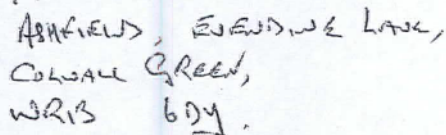 ASHFIELD, EVENDINE LANE,
COLWALL GREEN,
WR13 6DY.